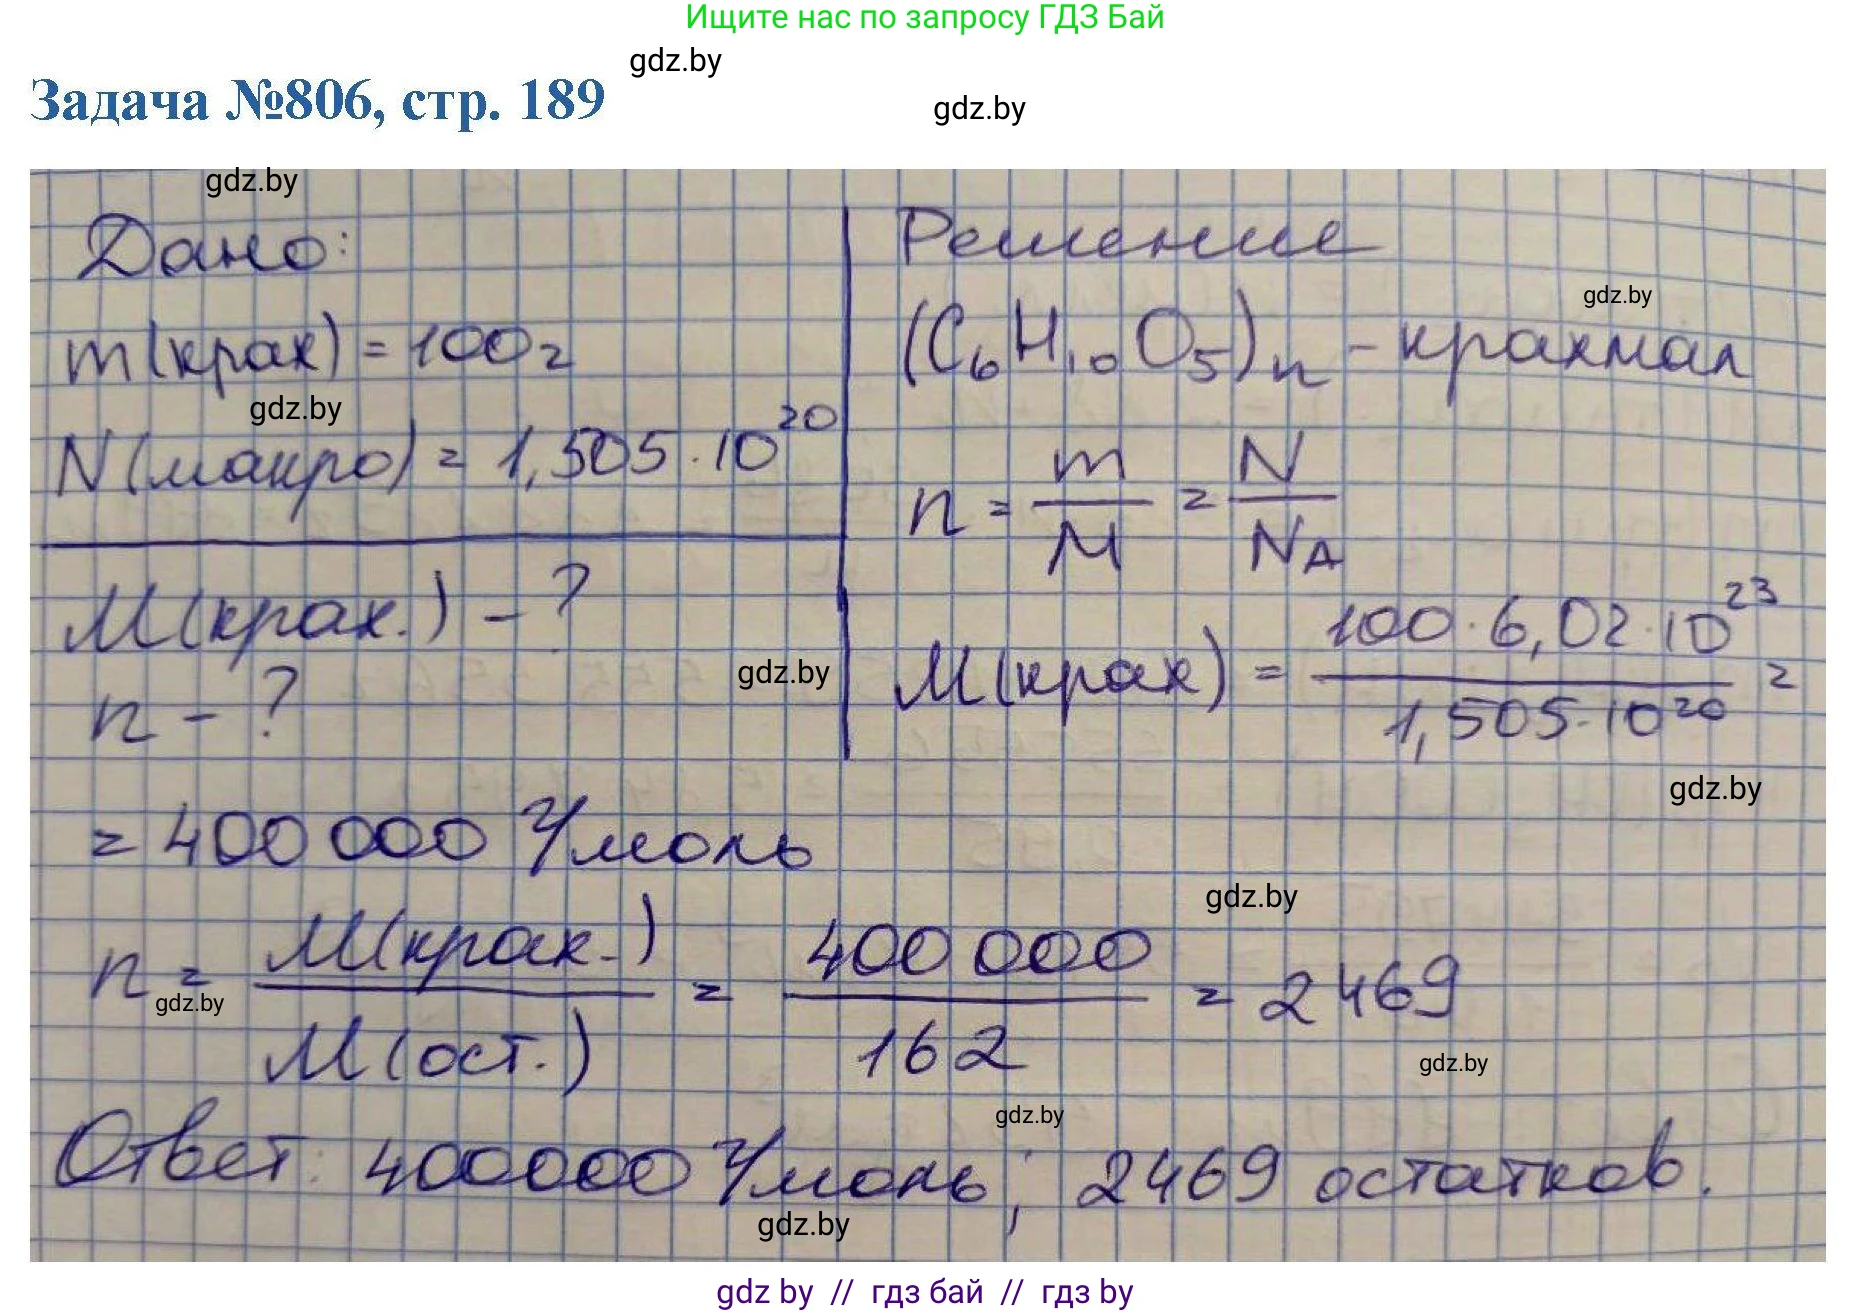 Ищите нас по запросу ГДЗ Бай
gdz.by
Задача №806, стр. 189
gdz.by
gdz.by
Дано:
m(крах) = 100г
gdz.by
N(макро) = 1,505·10²⁰
M(крах.) - ?
n - ?
gdz.by
Решение
gdz.by
(C₆H₁₀O₅)ₙ - крахмал
n = m/M = N/N_A
M(крах) = 100·6,02·10²³ / 1,505·10²⁰ =
gdz.by
= 400 000 г/моль
gdz.by
n = M(крах.) / M(ост.) = 400 000 / 162 = 2469
gdz.by
gdz.by
gdz.by
Ответ: 400000 г/моль; 2469 остатков.
gdz.by
gdz by // гдз бай // гдз by